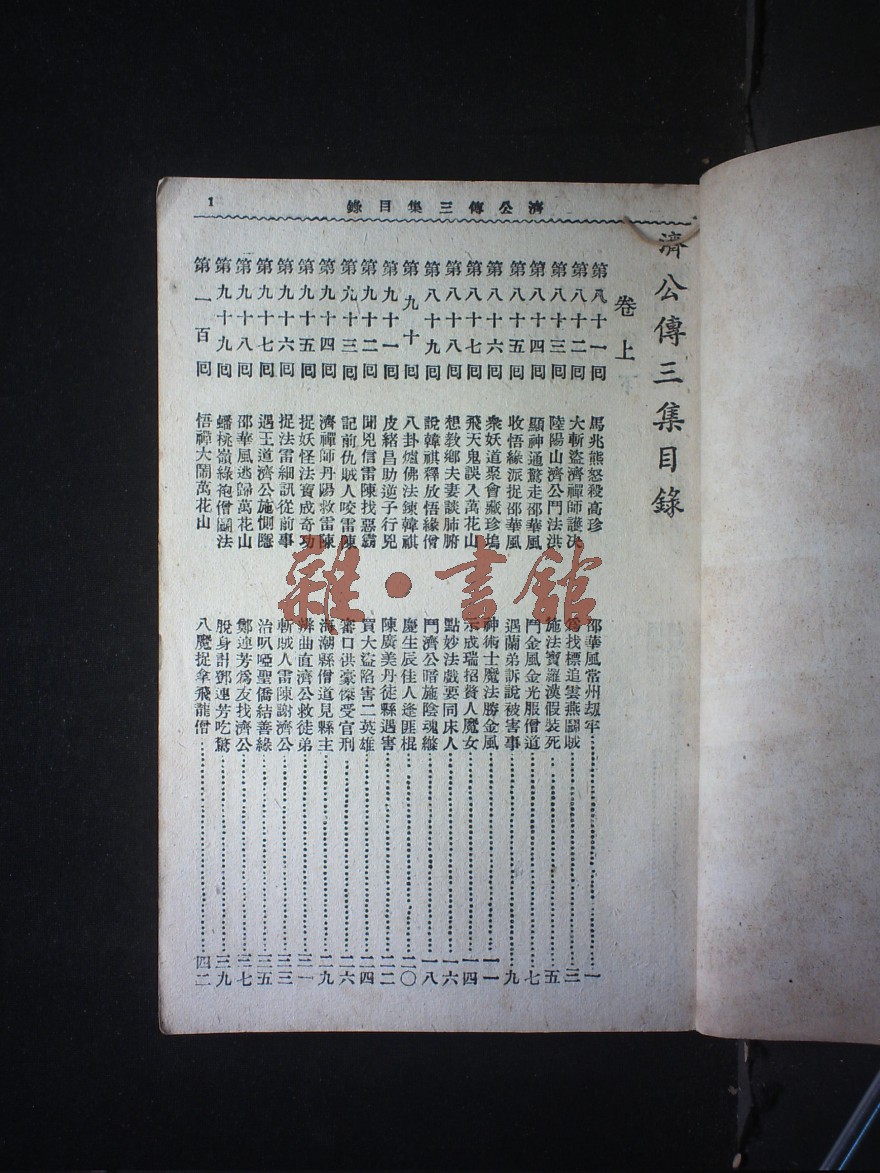 濟公傳三集目錄
1
濟公傳三集目錄
卷上
第八十一回 馬兆熊怒殺高珍 邵華風常州刼牢 一
第八十二回 大斬盜濟禪師護決 爲找標追雲燕鬭賊 三
第八十三回 陸陽山濟公鬥法洪 施法寶羅漢假裝死 五
第八十四回 顯神通驚走邵華風 鬥金風金光服僧道 七
第八十五回 收悟緣派捉邵華風 遇蘭弟訴說被害事 九
第八十六回 衆妖道聚會藏珍塢 神術士魔法勝金風 一一
第八十七回 飛天鬼誤入萬花山 成瑞招贅人魔女 一四
第八十八回 想教鄉夫妻談肺腑 點妙法戲耍同床人 一六
第八十九回 說韓祺釋放悟緣僧 鬥濟公暗施陰魂縧 一八
第九十回 八卦爐佛法鍊韓祺 慶生辰佳人逢匪棍 二〇
第九十一回 皮緒昌助逆子行兇 陳廣美丹徒縣遇害 二二
第九十二回 聞兇信雷陳找惡霸 買大盜陷害二英雄 二四
第九十三回 記前仇賊人咬雷陳 審口供豪傑受官刑 二六
第九十四回 濟禪師丹陽救雷陳 海潮縣僧道見縣主 二九
第九十五回 捉妖怪法寶成奇功 辨曲直濟公救徒弟 三一
第九十六回 捉法雷細訊從前事 斬賊人雷陳謝濟公 三三
第九十七回 遇王道濟公施惻隱 治叭啞聖僧結善緣 三五
第九十八回 邵華風逃歸萬花山 鄭連芳爲友找濟公 三七
第九十九回 蟠桃嶺綠袍僧鬭法 脫身計鄧連芳吃驚 三九
第一百回 悟禪大鬧萬花山 八魔捉拿飛龍僧 四二
雜·書館